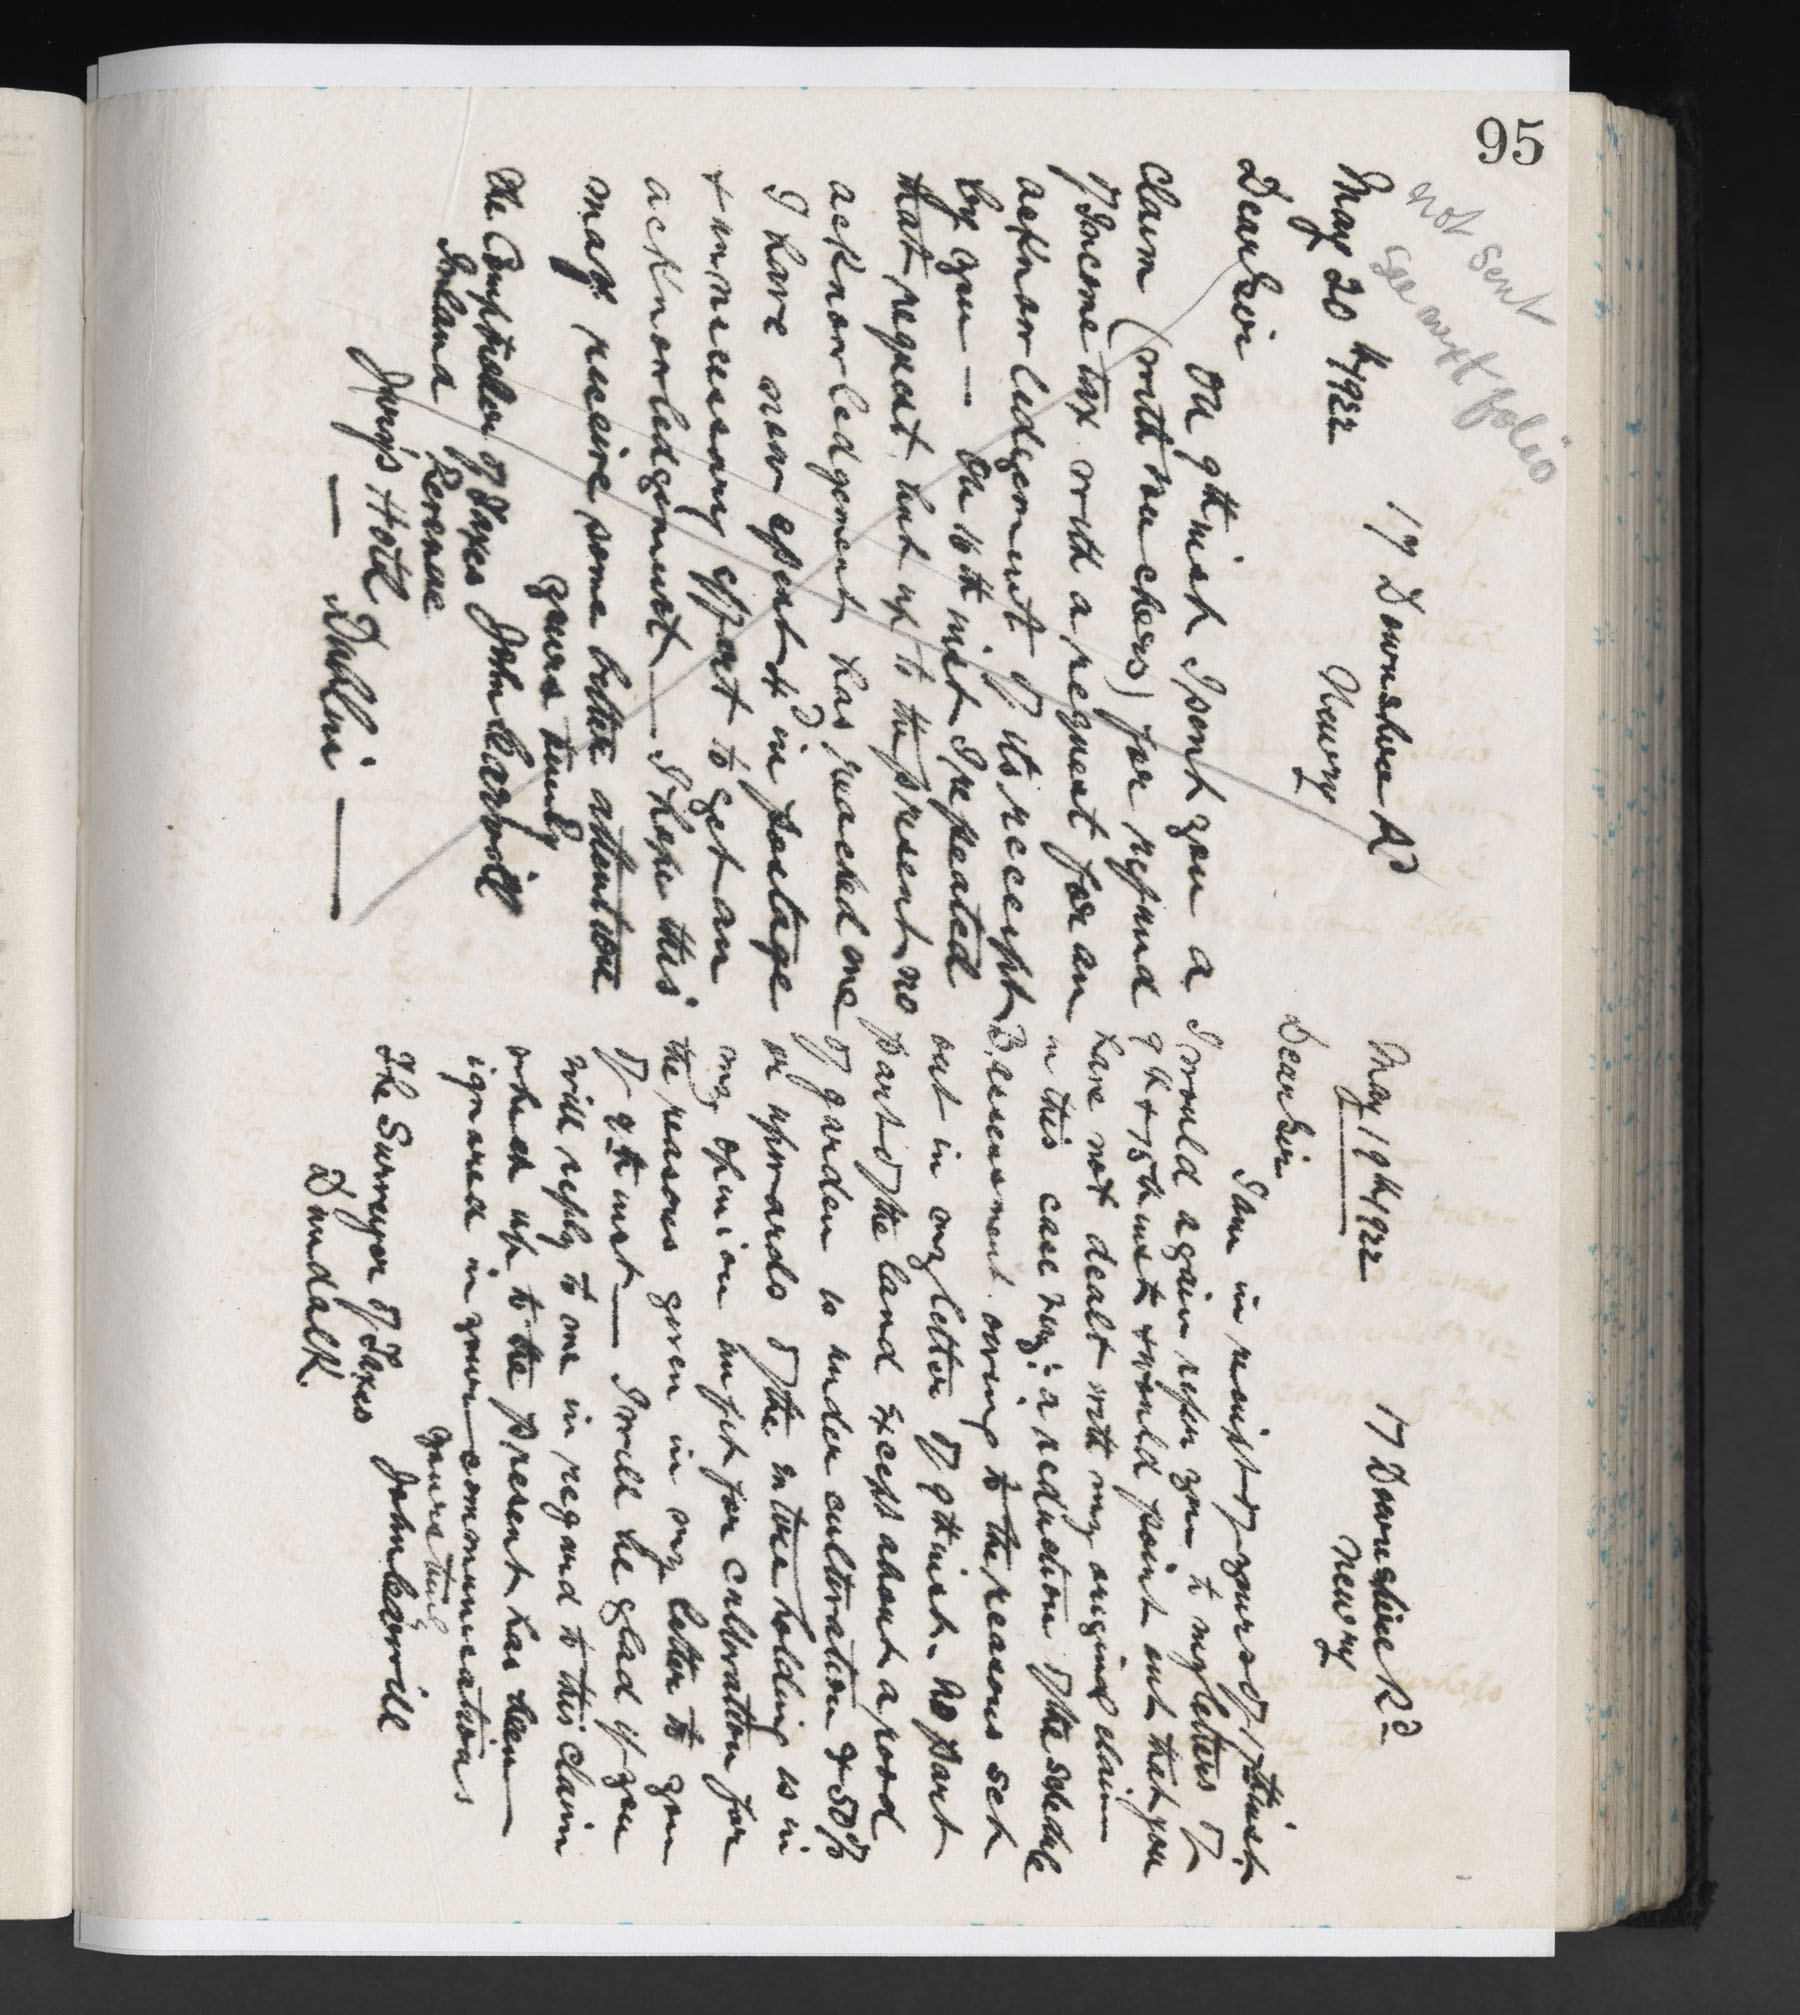 95
not sent
see next folio
17 Downshire Rd
Newry
May 20th 1922
Dear Sir
On 9th inst I sent you a
claim (with vouchers) for refund
of Income tax with a request for an
acknowledgement of its receipt
by you — On 16th inst I repeated
that request but up to the present no
acknowledgement has reached me
I have now spent in postage
& unnecessary effort to get an
acknowledgement — I hope this
may receive some better attention
yours truly
John Carvill
The Comptroller of Taxes
Inland Revenue
Jury's Hotel
— Dublin —
17 Downshire Rd
Newry
May 19th 1922
Dear Sir
I am in receipt of yours of 17th inst
I would again refer you to my letters of
9th & 15th inst & would point out that you
have not dealt with my original claim
in this case viz: a reduction of the schedule
B, assessment owing to the reasons set
out in my letter of 9th inst. No part
part of the land except about a rood
of garden is under cultivation & 50%
or upwards of the entire holding is in
my opinion unfit for cultivation for
the reasons given in my letter to you
of 9th inst — I will be glad if you
will reply to me in regard to this claim
which up to the present has been
ignored in your communications
yours truly
John Carvill
The Surveyor of Taxes
Dundalk